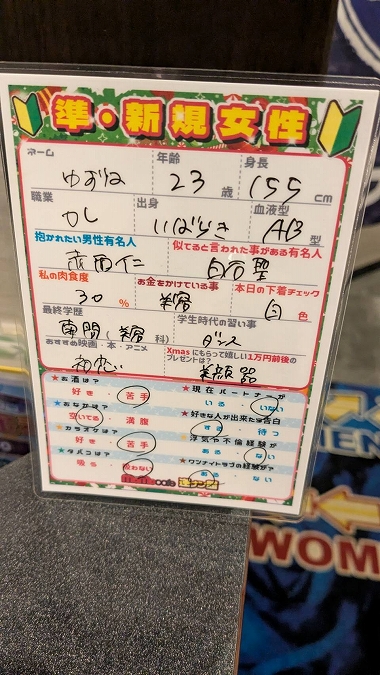 準・新規女性
ネーム 年齢 身長
ゆずは 23 歳 155 cm
職業 出身 血液型
かし いばらき AB 型
抱かれたい男性有名人 似てると言われた事がある有名人
赤西仁 白石聖
私の肉食度 お金をかけている事 本日の下着チェック
30 % 美容 白 色
最終学歴 学生時代の習い事
専門(美容 科) ダンス
おすすめ映画・本・アニメ Xmasにもらって嬉しい1万円前後の
プレゼントは?
初恋 美顔器
★お酒は? ★現在パートナーが
好き・苦手 いる・いない
★おなかは? ★好きな人が出来たら告白
空いてる・満腹 する・待つ
★カラオケは? ★浮気や不倫経験が
好き・苦手 ある・ない
★タバコは? ★ワンナイトラブの経験が?
吸う・吸わない ある・ない
WOM